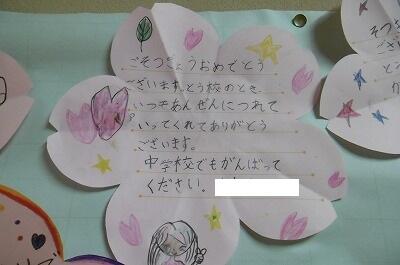 ごそつぎょうおめでとう
ございます。とう校のとき、
いつもあんぜんにつれて
いってくれてありがとう
ございます。
中学校でもがんばって
ください。
そつ
ござ
と